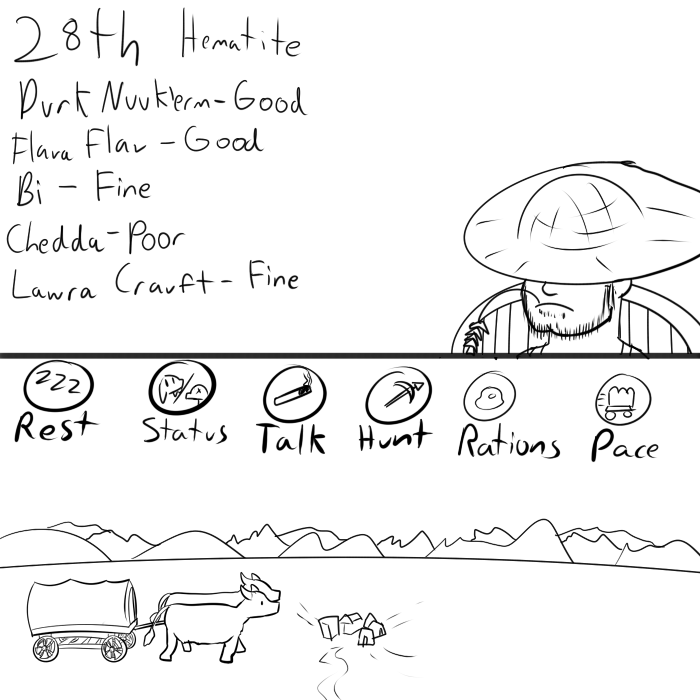 28th Hematite
Durk Nuuk'erm - Good
Flava Flav - Good
Bi - Fine
Chedda - Poor
Lawra Crauft - Fine
zzz
Rest Status Talk Hunt Rations Pace